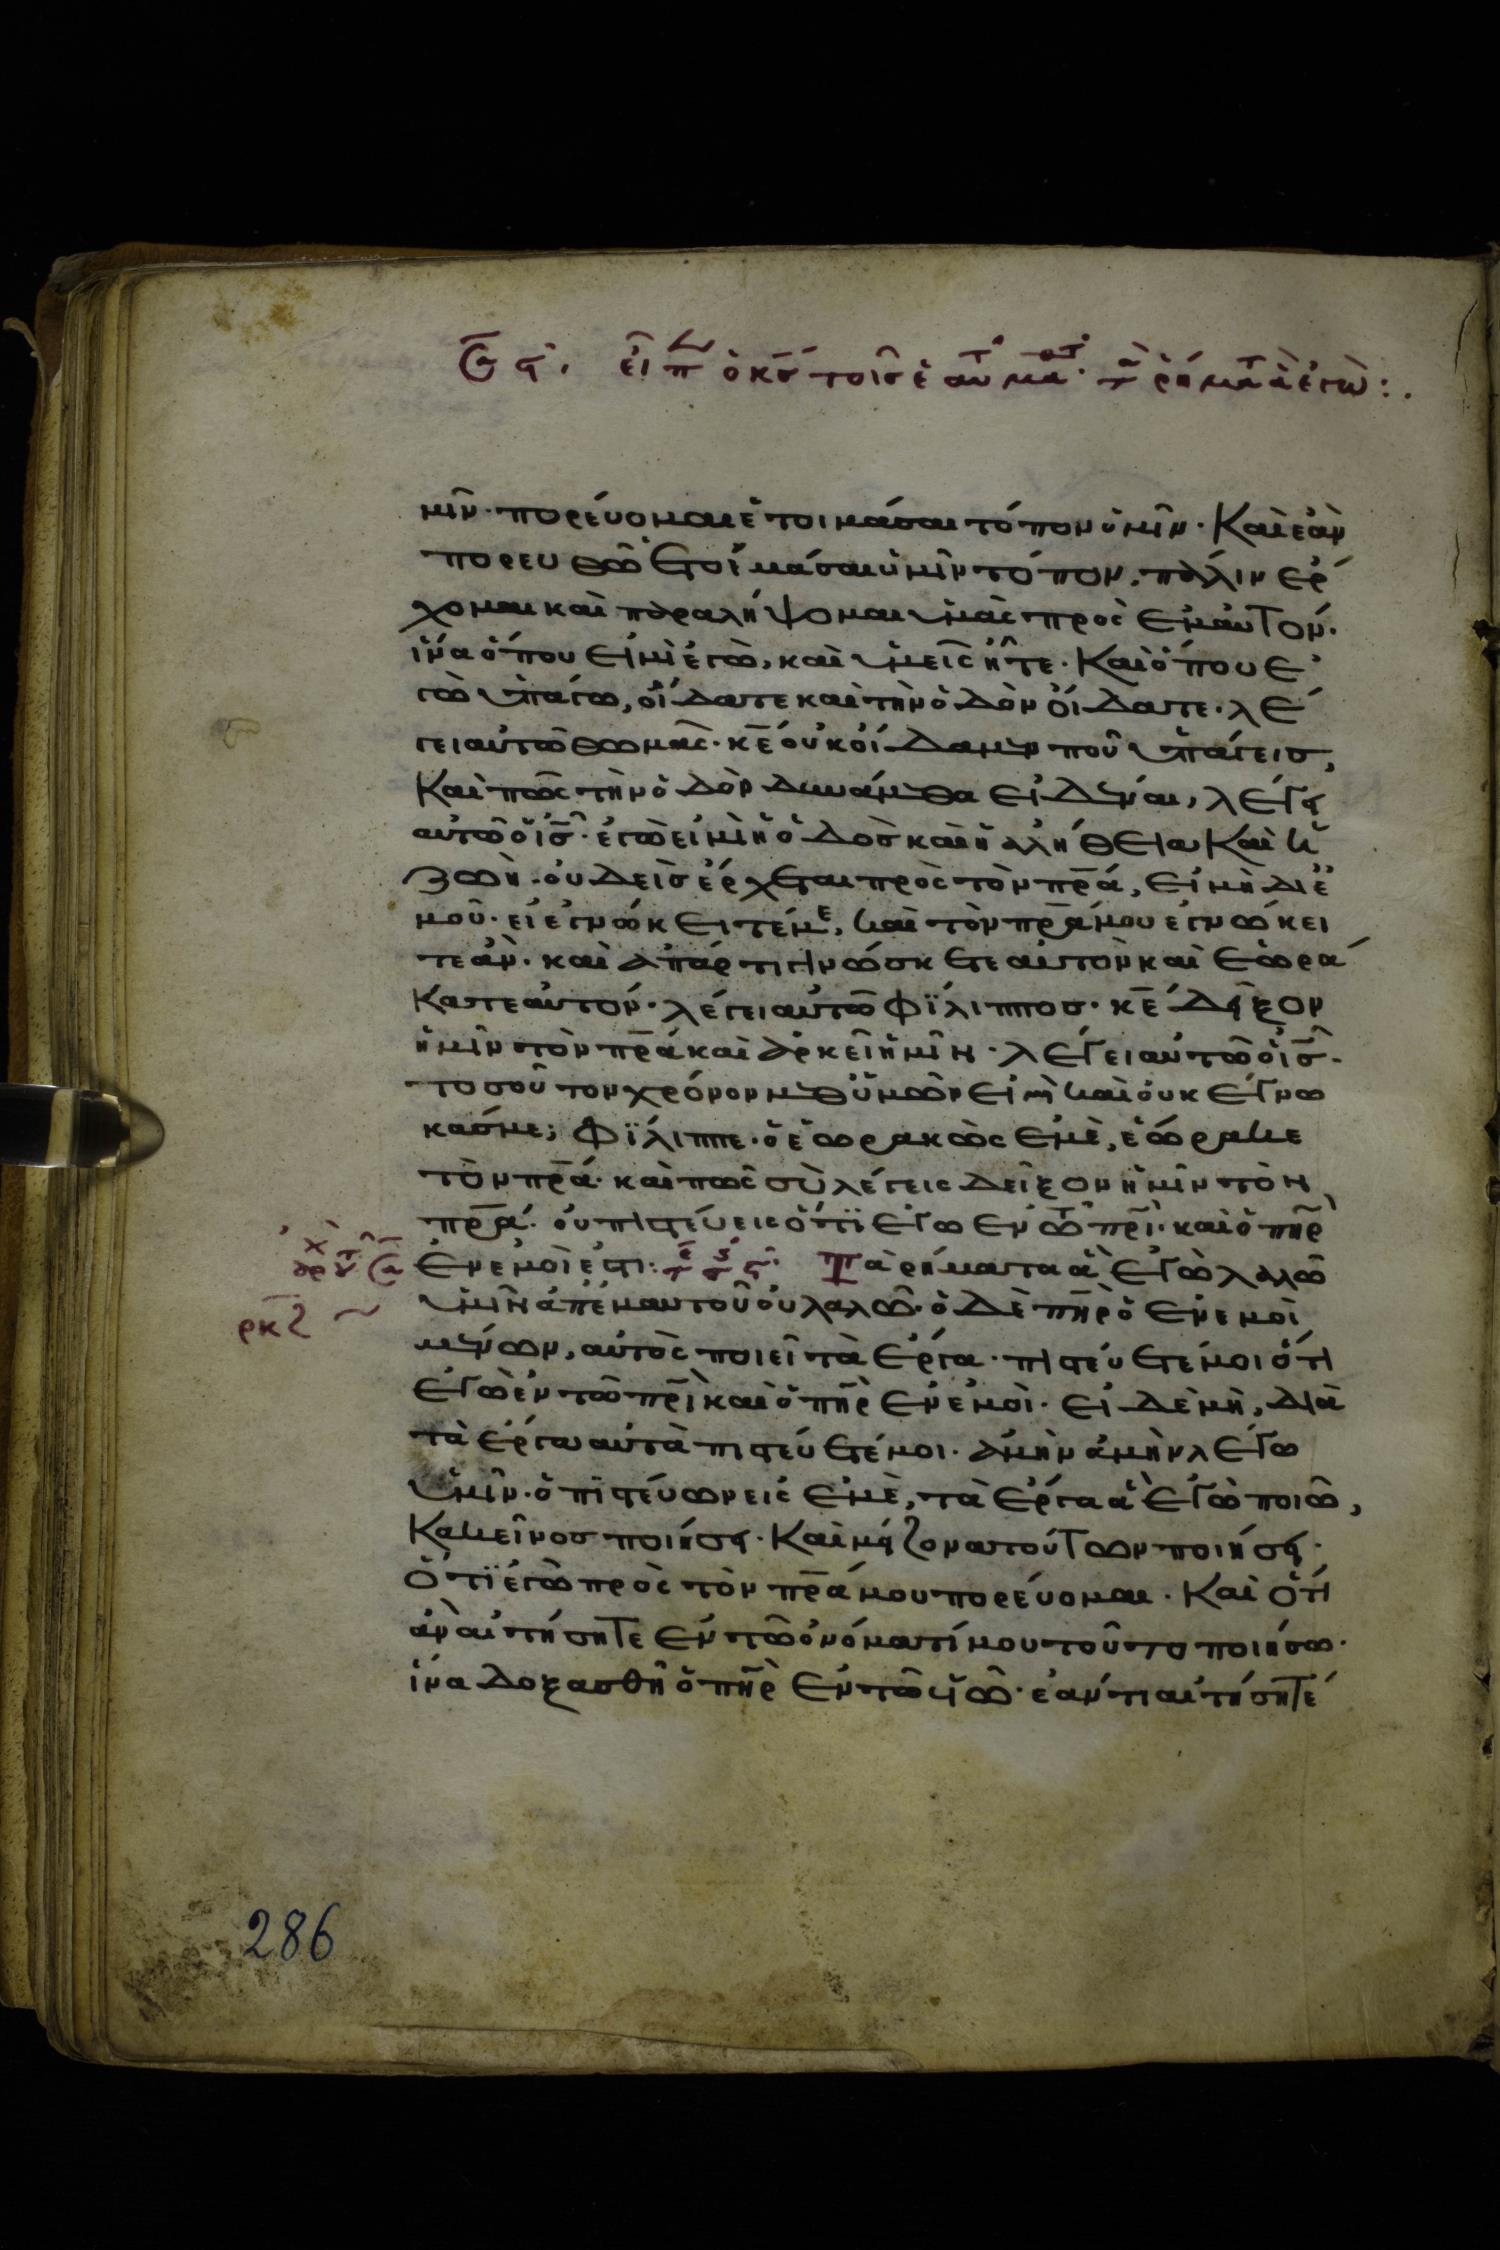 εἶπ ὁ κς τοῖς ἑαυ μα τ ῥήματα ἃ ἐγὼ:.
μῖν· πορεύομαι ἑτοιμάσαι τόπον ὑμῖν· Καὶ ἐὰν
πορευθῶ ἑτοιμάσαι ὑμῖν τόπον, πάλιν ἔρ
χομαι καὶ παραλήψομαι ὑμᾶς πρὸς ἐμαυτόν·
ἵνα ὅπου εἰμὶ ἐγὼ, καὶ ὑμεῖς ἦτε· Καὶ ὅπου ἐ
γὼ ὑπάγω, οἴδατε καὶ τὴν ὁδὸν οἴδατε· λέ
γει αὐτῶ θωμᾶς· κε οὐκ οἴδαμεν ποῦ ὑπάγεις,
Καὶ πῶς τὴν ὁδὸν δυνάμεθα εἰδέναι, λέγει
αὐτῶ ὁ ις· ἐγώ εἰμι ἡ ὁδὸς καὶ ἡ ἀλήθεια Καὶ ἡ
ζωὴ· οὐδεὶς ἔρχεται πρὸς τὸν πρα, εἰ μὴ δι ἐ
μοῦ· εἰ ἐγνώκειτέ με, καὶ τὸν πρα μου ἐγνώκει
τε ἄν· καὶ ἀπάρτι γινώσκετε αὐτὸν καὶ ἑωρά
κατε αὐτόν· λέγει αὐτῶ Φίλιππος· κε δεῖξον
ἡμῖν τὸν πρα καὶ ἀρκεῖ ἡμῖν· λέγει αὐτῶ ὁ ις·
τοσοῦτον χρόνον μεθ ὑμῶν εἰμὶ καὶ οὐκ ἔγνω
κάς με; Φίλιππε· ὁ ἑωρακὼς ἐμὲ, ἑώρακε
τὸν πρα· καὶ πῶς σὺ λέγεις δεῖξον ἡμῖν τὸν
πρα· οὐ πιστεύεις ὅτι ἐγὼ ἐν τῶ πρι· καὶ ὁ πηρ
ἐν ἐμοί ἐστι: Τὰ ῥήματα ἃ ἐγὼ λαλῶ
ρκζ ὑμῖν ἀπ ἐμαυτοῦ οὐ λαλῶ· ὁ δὲ πηρ ὁ ἐν ἐμοὶ
μένων, αὐτὸς ποιεῖ τὰ ἔργα· πιστεύετέ μοι ὅτι
ἐγὼ ἐν τῶ πρι καὶ ὁ πηρ ἐν ἐμοὶ· εἰ δὲ μὴ, διὰ
τὰ ἔργα αὐτὰ πιστεύετέ μοι· ἀμὴν ἀμὴν λέγω
ὑμῖν· ὁ πιστεύων εἰς ἐμὲ, τὰ ἔργα ἃ ἐγὼ ποιῶ,
Κακεῖνος ποιήσει· Καὶ μείζονα τούτων ποιήσει·
ὅτι ἐγὼ πρὸς τὸν πρα μου πορεύομαι· Καὶ ὅτι
ἂν αἰτήσητε ἐν τῶ ὀνόματί μου τοῦτο ποιήσω·
ἵνα δοξασθῆ ὁ πηρ ἐν τῶ υἱῶ· ἐάν τι αἰτήσητέ
286